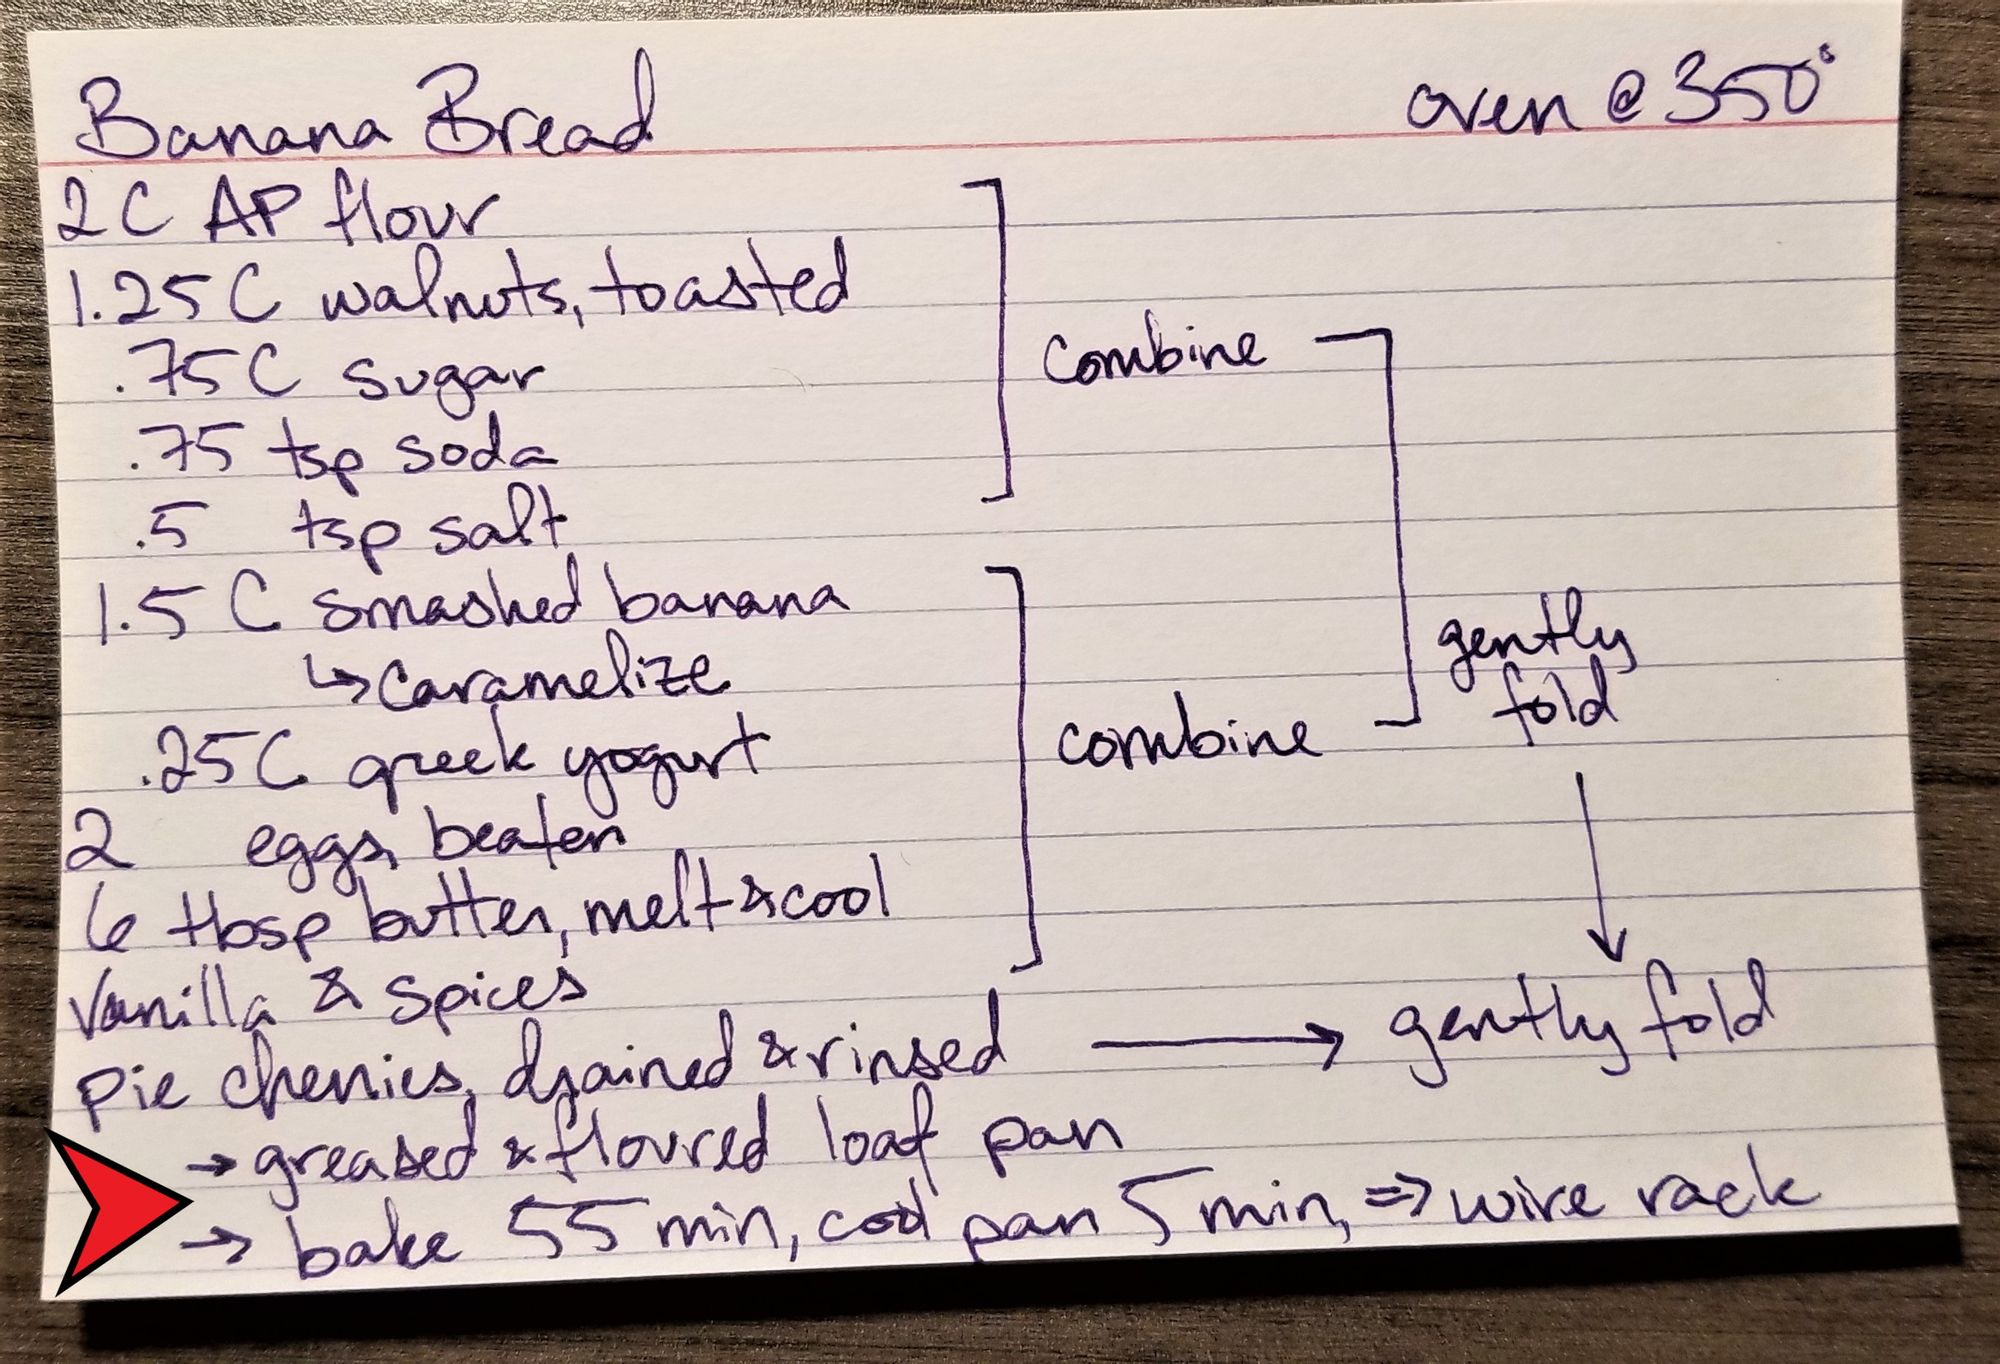 Banana Bread oven @ 350°
2 C AP flour
1.25 C walnuts, toasted
.75 C sugar
combine
.75 tsp soda
.5 tsp salt
1.5 C smashed banana
↳ caramelize
gently
fold
.25 C greek yogurt
combine
2 eggs, beaten
6 tbsp butter, melt & cool
Vanilla & spices
pie cherries, drained & rinsed → gently fold
→ greased & floured loaf pan
→ bake 55 min, cool pan 5 min, ⇒ wire rack